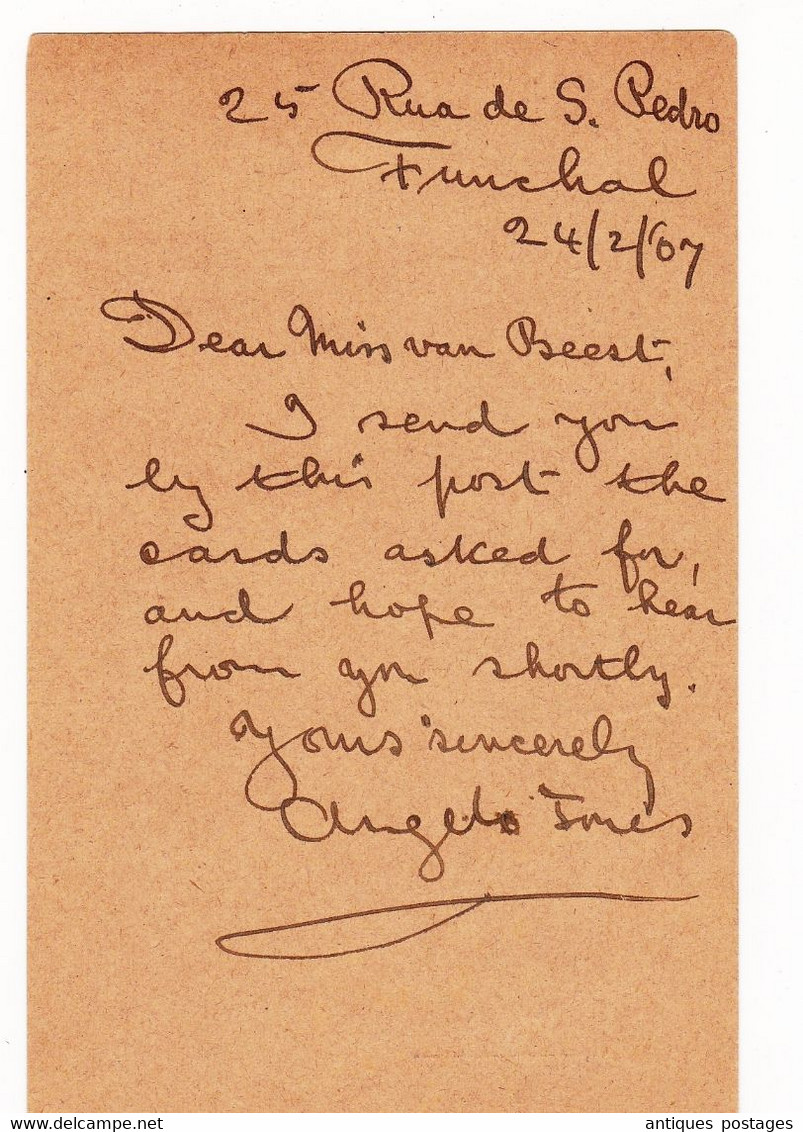 25 Rua de S. Pedro
Funchal
24/2/07
Dear Miss van Beest,
I send you
by this post the
cards asked for,
and hope to hear
from you shortly.
Yours sincerely
Angelo
antiques postages